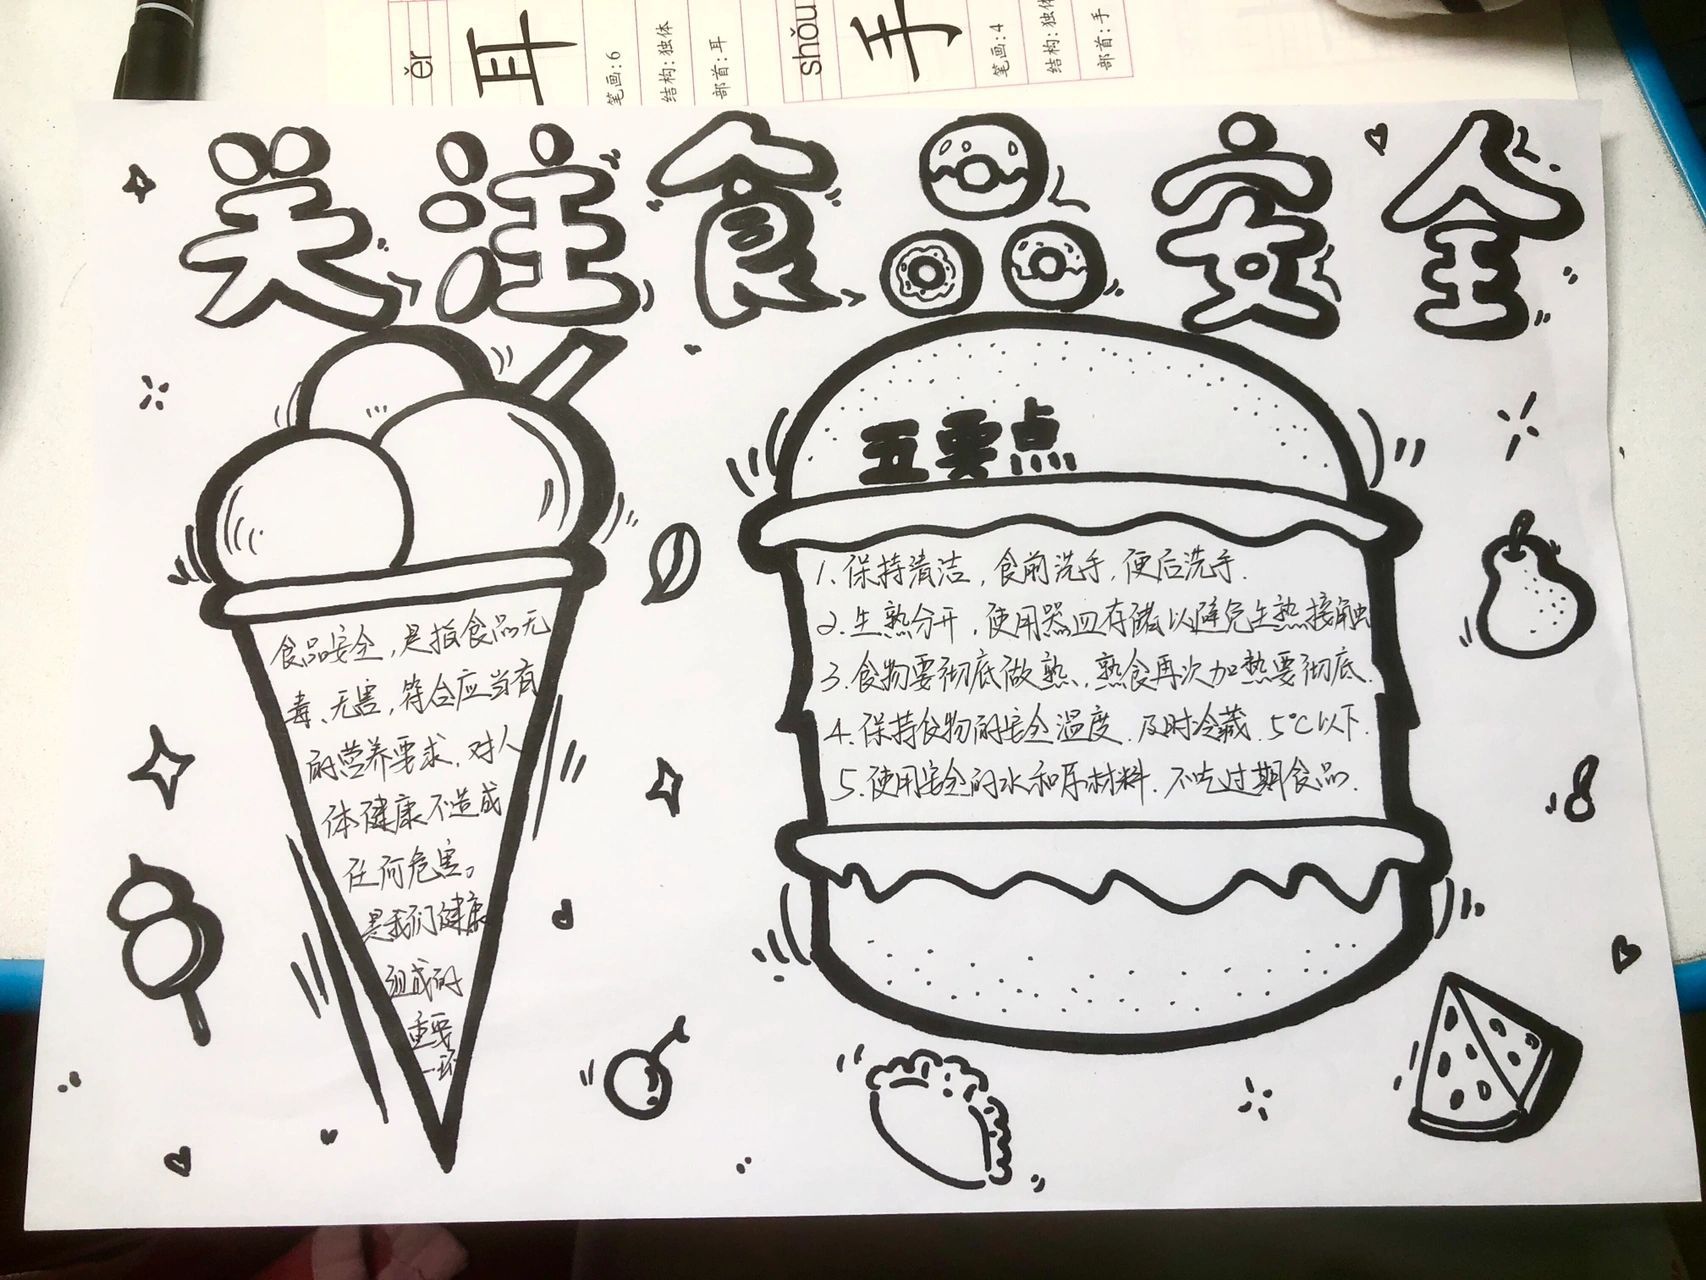 ěr
耳
笔画:6
结构:独体
部首:耳
shǒu
手
笔画:4
结构:独体
部首:手
关注食品安全
食品安全,是指食品无
毒、无害,符合应当有
的营养要求,对人
体健康不造成
任何危害。
是我们健康
组成的
重要
一环
五要点
1.保持清洁,食前洗手,便后洗手.
2.生熟分开,使用器皿存储以避免生熟接触
3.食物要彻底做熟、熟食再次加热要彻底.
4.保持食物的安全温度.及时冷藏.5°C以下.
5.使用安全的水和原材料.不吃过期食品.